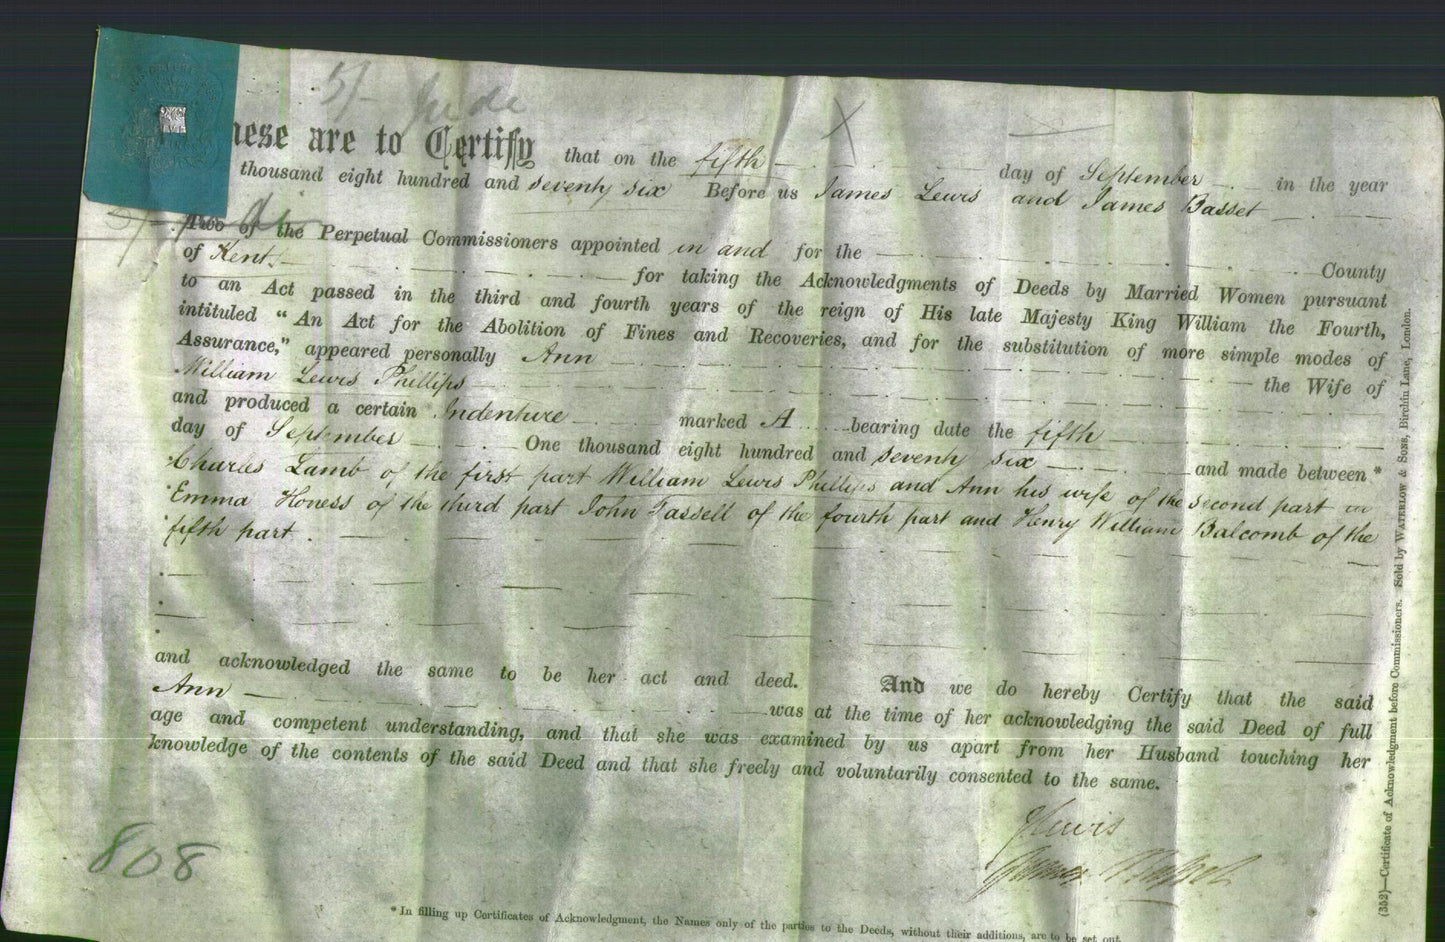 5/- Jude
hese are to Certify that on the fifth day of September in the year
thousand eight hundred and seventy six Before us James Lewis and James Basset
Two of the Perpetual Commissioners appointed in and for the County
of Kent. for taking the Acknowledgments of Deeds by Married Women pursuant
to an Act passed in the third and fourth years of the reign of His late Majesty King William the Fourth,
intituled "An Act for the Abolition of Fines and Recoveries, and for the substitution of more simple modes of
Assurance," appeared personally Ann the Wife of
William Lewis Phillips
and produced a certain Indenture marked A bearing date the fifth
day of September One thousand eight hundred and seventy six and made between*
Charles Lamb of the first part William Lewis Phillips and Ann his wife of the second part
Emma Honess of the third part John Tassell of the fourth part and Henry William Balcomb of the
fifth part.
and acknowledged the same to be her act and deed. And we do hereby Certify that the said
Ann was at the time of her acknowledging the said Deed of full
age and competent understanding, and that she was examined by us apart from her Husband touching her
knowledge of the contents of the said Deed and that she freely and voluntarily consented to the same.
JLewis
James Basset
808
*In filling up Certificates of Acknowledgment, the Names only of the parties to the Deeds, without their additions, are to be set out.
(352)—Certificate of Acknowledgment before Commissioners. Sold by WATERLOW & SONS, Birchin Lane, London.